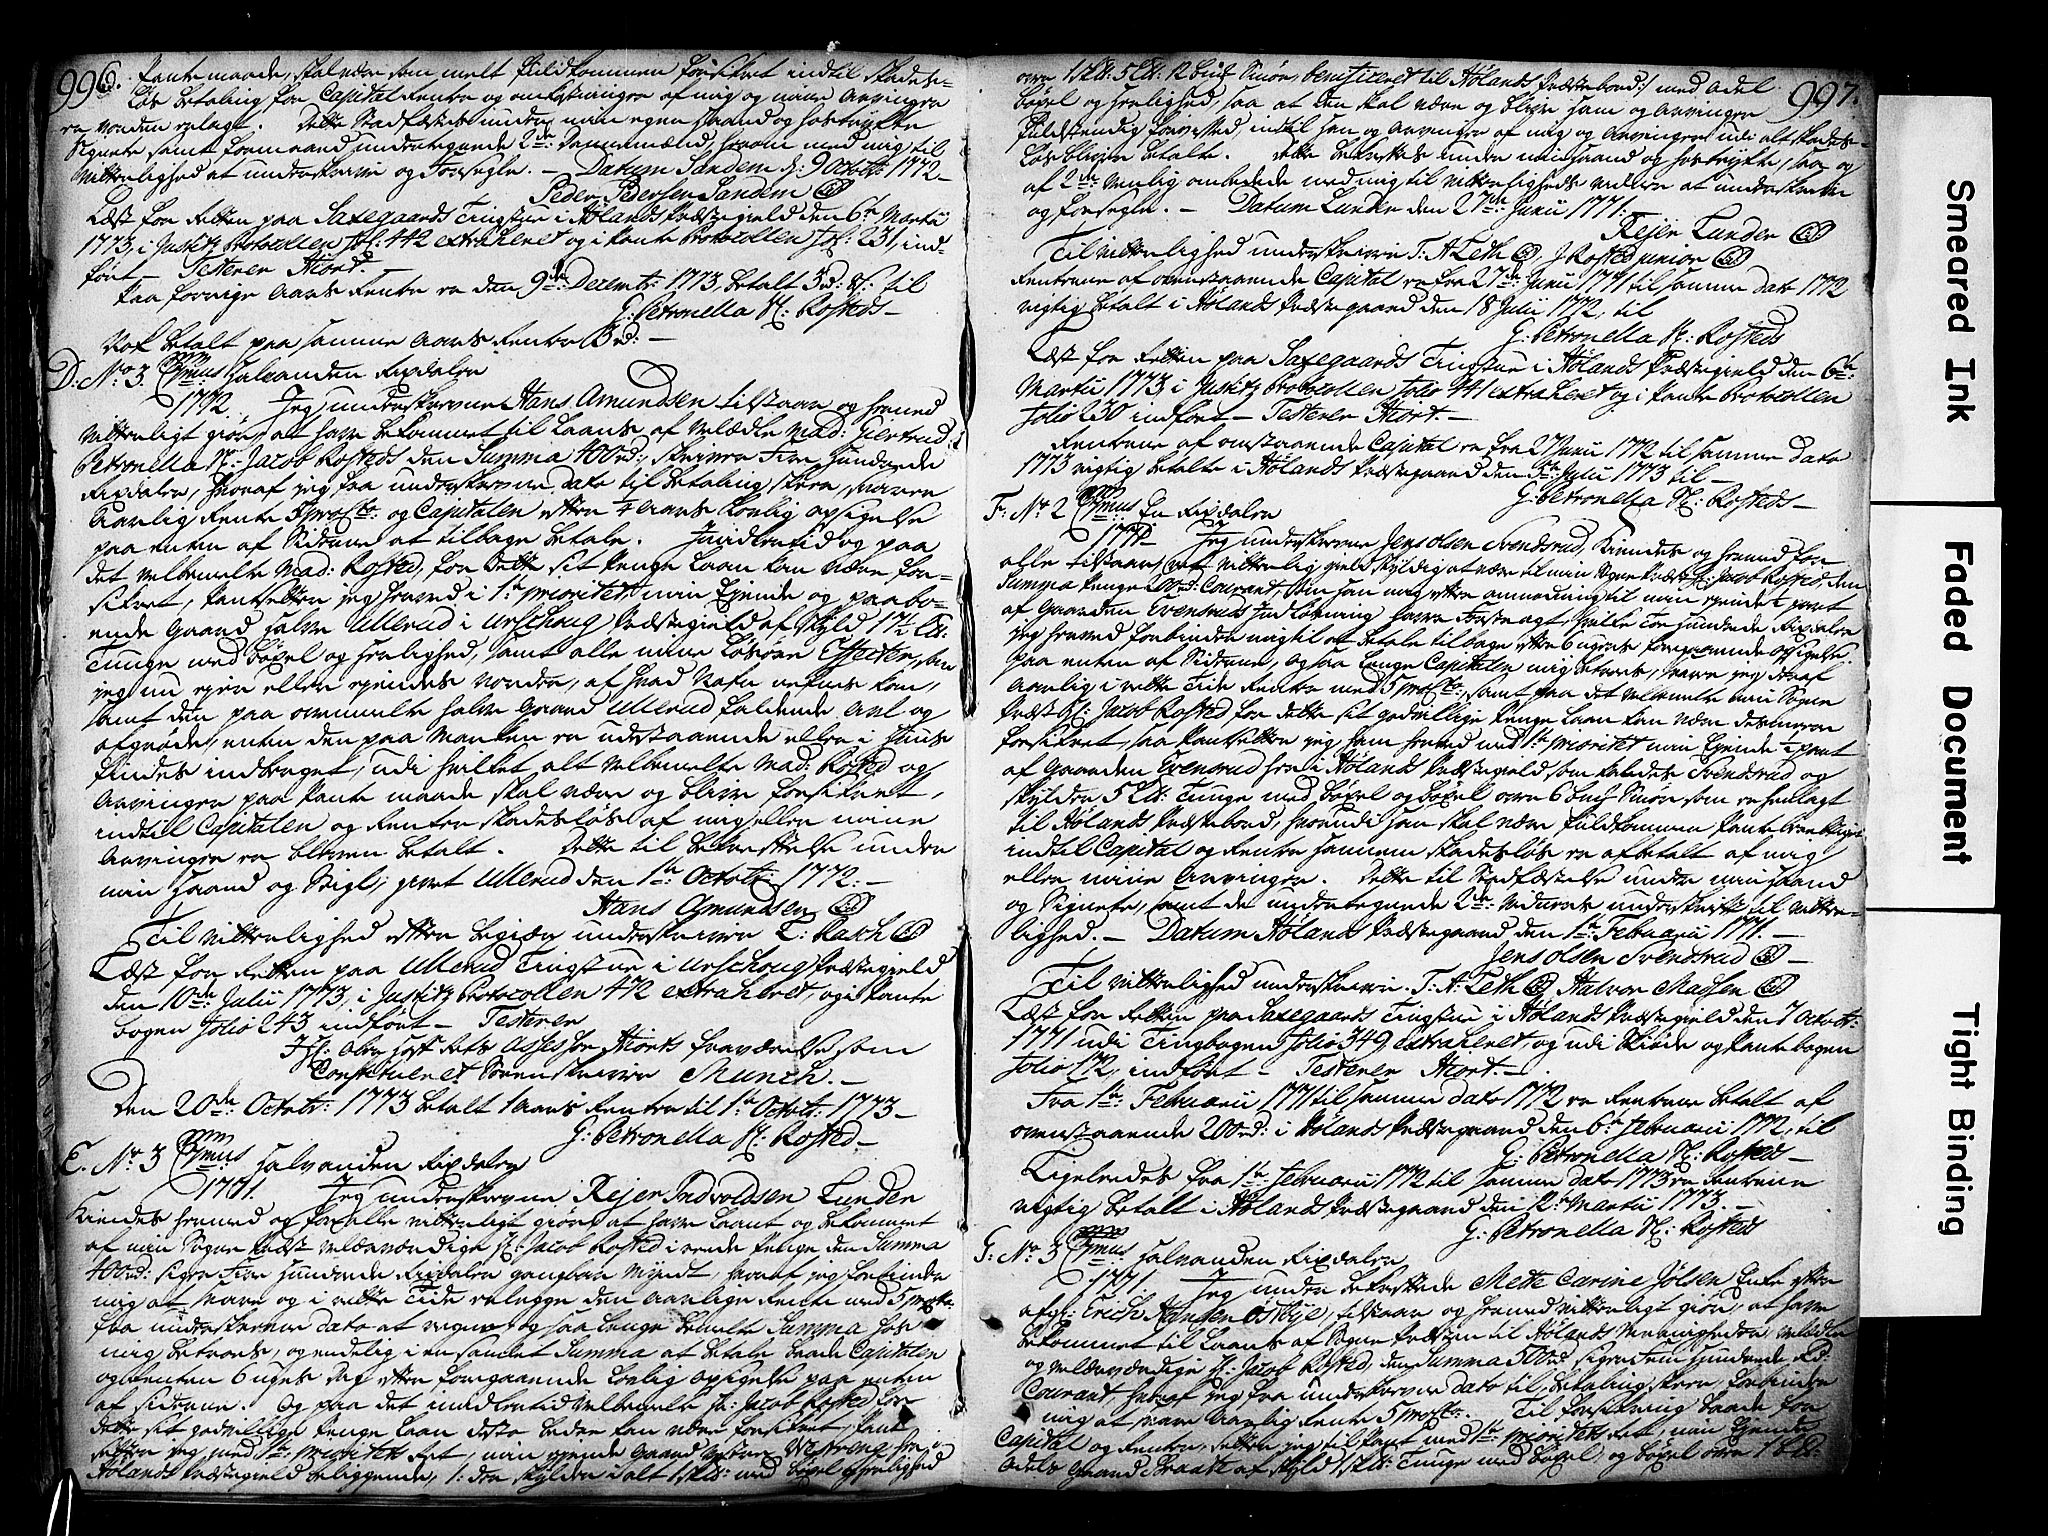 996.
Pante maade, skal være som melt fuldkommen forsikret indtil skades-
løs betaling for Capital Rente og omkostninger af mig og mine Arvinger
er vorden erlagt. Dette Stadfæstes under min egen Haand og hostrykte
Signete samt formaaed undertegnede 2de Dannemænd, herom med mig til
vitterlighed at underskrive og Forsegle. – Datum Sandem d: 9 Octobr: 1772 –
Peder Pedersen Sandem
Læst for Retten paa Saxegaards Tingstue i Hølands Præstegield den 6te Martii
1773, i Justitz Protocollen fol: 442 extraheret og i Pante Protocollen fol: 231, ind-
ført – Testerer Hiort.
Paa forrige Aars Rente er den 9de Decembr: 1773, betalt 5rd: til
G: Petronella Sl: Rosteds –
Nok betalt paa samme Aars Rente 3rd: –
D: No 3. Cmus halvanden Rixdaler
1772. Jeg underskrevne Hans Amundsen tilstaar og herved
vitterligt giør, at have bekommet til Laans af velædle Mad: Giertrud
Petronella Sl: Jacob Rosteds den Summa 400rd: skriver Fire Hundrede
Rixdaler, hvoraf jeg fra underskrevne dato til betaling skeer, svarer
Aarlig Rente 5 procto og Capitalen efter 1/4 Aars Lovlig opsigelse
paa enten af Siderne at tilbage betale. Imidlertid og paa
det velbemelte Mad: Rosted, for dette sit Penge Laan kan være for-
sikret, Pantsetter jeg herved i 1te prioritet min Ejende og paaboe-
ende Gaard halve Ullerud i Urschoug Præstegield af skyld 17½ Ld:
Tunge med bøxel og herlighed, samt alle mine Løsøre Effecter, som
jeg nu ejer eller ejendes vorder, af hvad Nafn nefnes kan,
samt den paa ovenmelte halve Gaard Ullerud faldende Avl og
afgrøde, enten den paa Marken er udestaaende eller i Huus
findes indbragt, udi hvilket alt velbemelte Mad: Rosted og
Arvinger paa Pante maade skal være og blive forsikret,
indtil Capitalen og Renter skadesløs af mig eller mine
Arvinger er bleven betalt. Dette til bekræftelse under
min Haand og Seigl; givet Ullerud den 1te Octobr: 1772. –
Hans Amundsen
Til vitterlighed efter begiær underskriver T: Rasch
Læst for Retten paa Ullerud Tingstue i Urschoug Præstegield
den 10de Julii 1773, i Justitz Protocollen 472 extraheret, og i Pante
bogen folio 243 indført – Testerer
I Hr: Ober Hoff Rets Assessor Hiorts fraværelse som
Constitueret Sorenskriver Munch. –
Den 20de Octobr: 1773 betalt 1 Aars Rente til 1te Octobr: 1773 –
G: Petronella Sl: Rosted –
E. No 3 Cmus halvanden Rixdaler
1771. Jeg underskrevne Rejer Lunden
Kiendes herved og for alle vitterligt giør, at have Laant og bekommet
af min Sogne Præst velærværdige Hr: Jacob Rosted i rede Penge den Summa
400rd: siger Fire Hundrede Rixdaler gangbar Myndt, hvoraf jeg forbinder
mig at svare og i rette Tide erlegge den aarlige Rente med 5 procto
fra underskrevne dato at regne, og saa længe bemelte Summa hos
mig beroer, og endelig i en samlet Summa at betale baade Capitalen
og Renten 6 uger efter foregaaende Lovlig opsigelse paa enten
af siderne. Og paa det imidlertid velbemelte Hr: Jacob Rosted for
dette sit godvillige Penge Laan desto bedre kan være forsikret, Pant-
setter jeg med 1te prioritets Ret, min ejende Gaard
Hølands Præstegield beliggende, som skylder i alt 1 Skd: med bøxel og herlighed
997.
over 1 Skd: 5 Ld: 12 bmk Smør, beneficeret til Hølands Præstebord med Odel
bøxel og herlighed, saa at den skal være og blive ham og Arvinger
fuldstendig forsikred, indtil han og Arvinger af mig og Arvinger udi alt skades-
løs bliver betalt. Dette bekræftes under min Haand og hostrykte, saa og
af 2de venlig ombedede med mig til vitterligheds vidner at underskrive
og forsegle. – Datum Lunden den 27de Junii 1771.
Rejer Lunden
Til vitterlighed underskriver T: A Leth J Rosted junior
Renterne af ovenstaaende Capital er fra 27de Junii 1771 til samme dato 1772
rigtig betalt i Hølands Præstegaard den 18 Julii 1772, til
G: Petronella Sl: Rosteds
Læst for Retten paa Saxegaards Tingstue i Hølands Præstegield den 6te
Martii 1773, i Justitz Protocollen folio 441 extraheret og i Pante Protocollen
folio 230 indført – Testerer Hiort –
Renterne af omstaaende Capital er fra 27 Junii 1772 til samme dato
1773 rigtig betalte i Hølands Præstegaard den Julii 1773 til –
G: Petronella Sl: Rosteds –
F: No 2 Cmus En Rixdaler
Jeg underskrevne Jens Olsen Svendsrud, Kiendes og herved for
alle tilstaar, ret vitterlig gield skyldig at være til min Sogne Præst Hr: Jacob Rosted, den
Summa Penge 200rd: Courant, som han mig efter anmodning til min ejende part
af Gaarden Evensruds Indløsning haver forstragt, hvilke Toe Hundrede Rixdaler
jeg herved forbinder mig til at betale tilbage efter 6 ugers foregaaende opsigelse
paa enten af Siderne, og saa længe Capitalen mig betroes, svare jeg deraf
Aarlig i rette Tide Rente med 5 procto, samt paa det velbemelte min Sogne
Præst Hr: Jacob Rosted for dette sit godvillige Penge Laan kan være desmeere
forsikret, saa Pantsetter jeg ham herved med 1te prioritet min Ejende part
af Gaarden Evensrud her i Hølands Præstegield som kaldes Svendsrud og
skylder 5 Ld: Tunge med bøxel og bøxel over 6 bmk Smør som er henlagt
til Hølands Præstebord, hvorudi han skal være fuldkommen Pante berettiget
indtil Capital og Rente hannem skadesløs er afbetalt af mig
eller mine Arvinger. Dette til Stadfæstelse under min Haand
og Signete, samt de undertegnede 2de vidners underskrift til vitter-
lighed. – Datum Hølands Præstegaard den 1te Februarii 1771. –
Jens Olsen Svendsrud –
Til vitterlighed underskriver. T: A Leth Halvor Madsen
Læst for Retten paa Saxegaards Tingstue i Hølands Præstegield den 7 Octobr:
1771 udi Tingbogen folio 349 extraheret, og udi Skiøde og Pantebogen
folio 172, indført – Testerer Hiort –
Fra 1te Februarii 1771 til samme dato 1772 er Renterne betalt af
ovenstaaende 200rd: i Hølands Præstegaard den 6te februarii 1772, til
G: Petronella Sl: Rosteds –
Ligeledes fra 1te februarii 1772 til samme dato 1773 er Renterne
rigtig betalt i Hølands Præstegaard den 12te Martii 1773. –
G: Petronella Sl: Rosteds
G: No 3 Cmus halvanden Rixdaler
1771. Jeg under bekræftede Mette Carine Jølsen Enke efter
afg: Erich Hansen Østbye, tilstaar og herved vitterligt giør, at have
bekommet til Laans af Sogne Præsten til Hølands Menigheder, velædle
og velærværdige Hr: Jacob Rosted, den Summa 500rd siger Fem Hundrede Rd:
Courant, hvoraf jeg fra underskrevne dato til betaling skeer, forbinder
mig at svare Aarlig Rente 5 procto. Til forsikring baade for
Capital og Renter, setter jeg til Pant med 1te prioritets Ret, min Ejende
Odels Gaard Braate af skyld 1 Skd: Tunge med bøxel, og bøxel over
Smeared Ink
Faded Document
Tight Binding